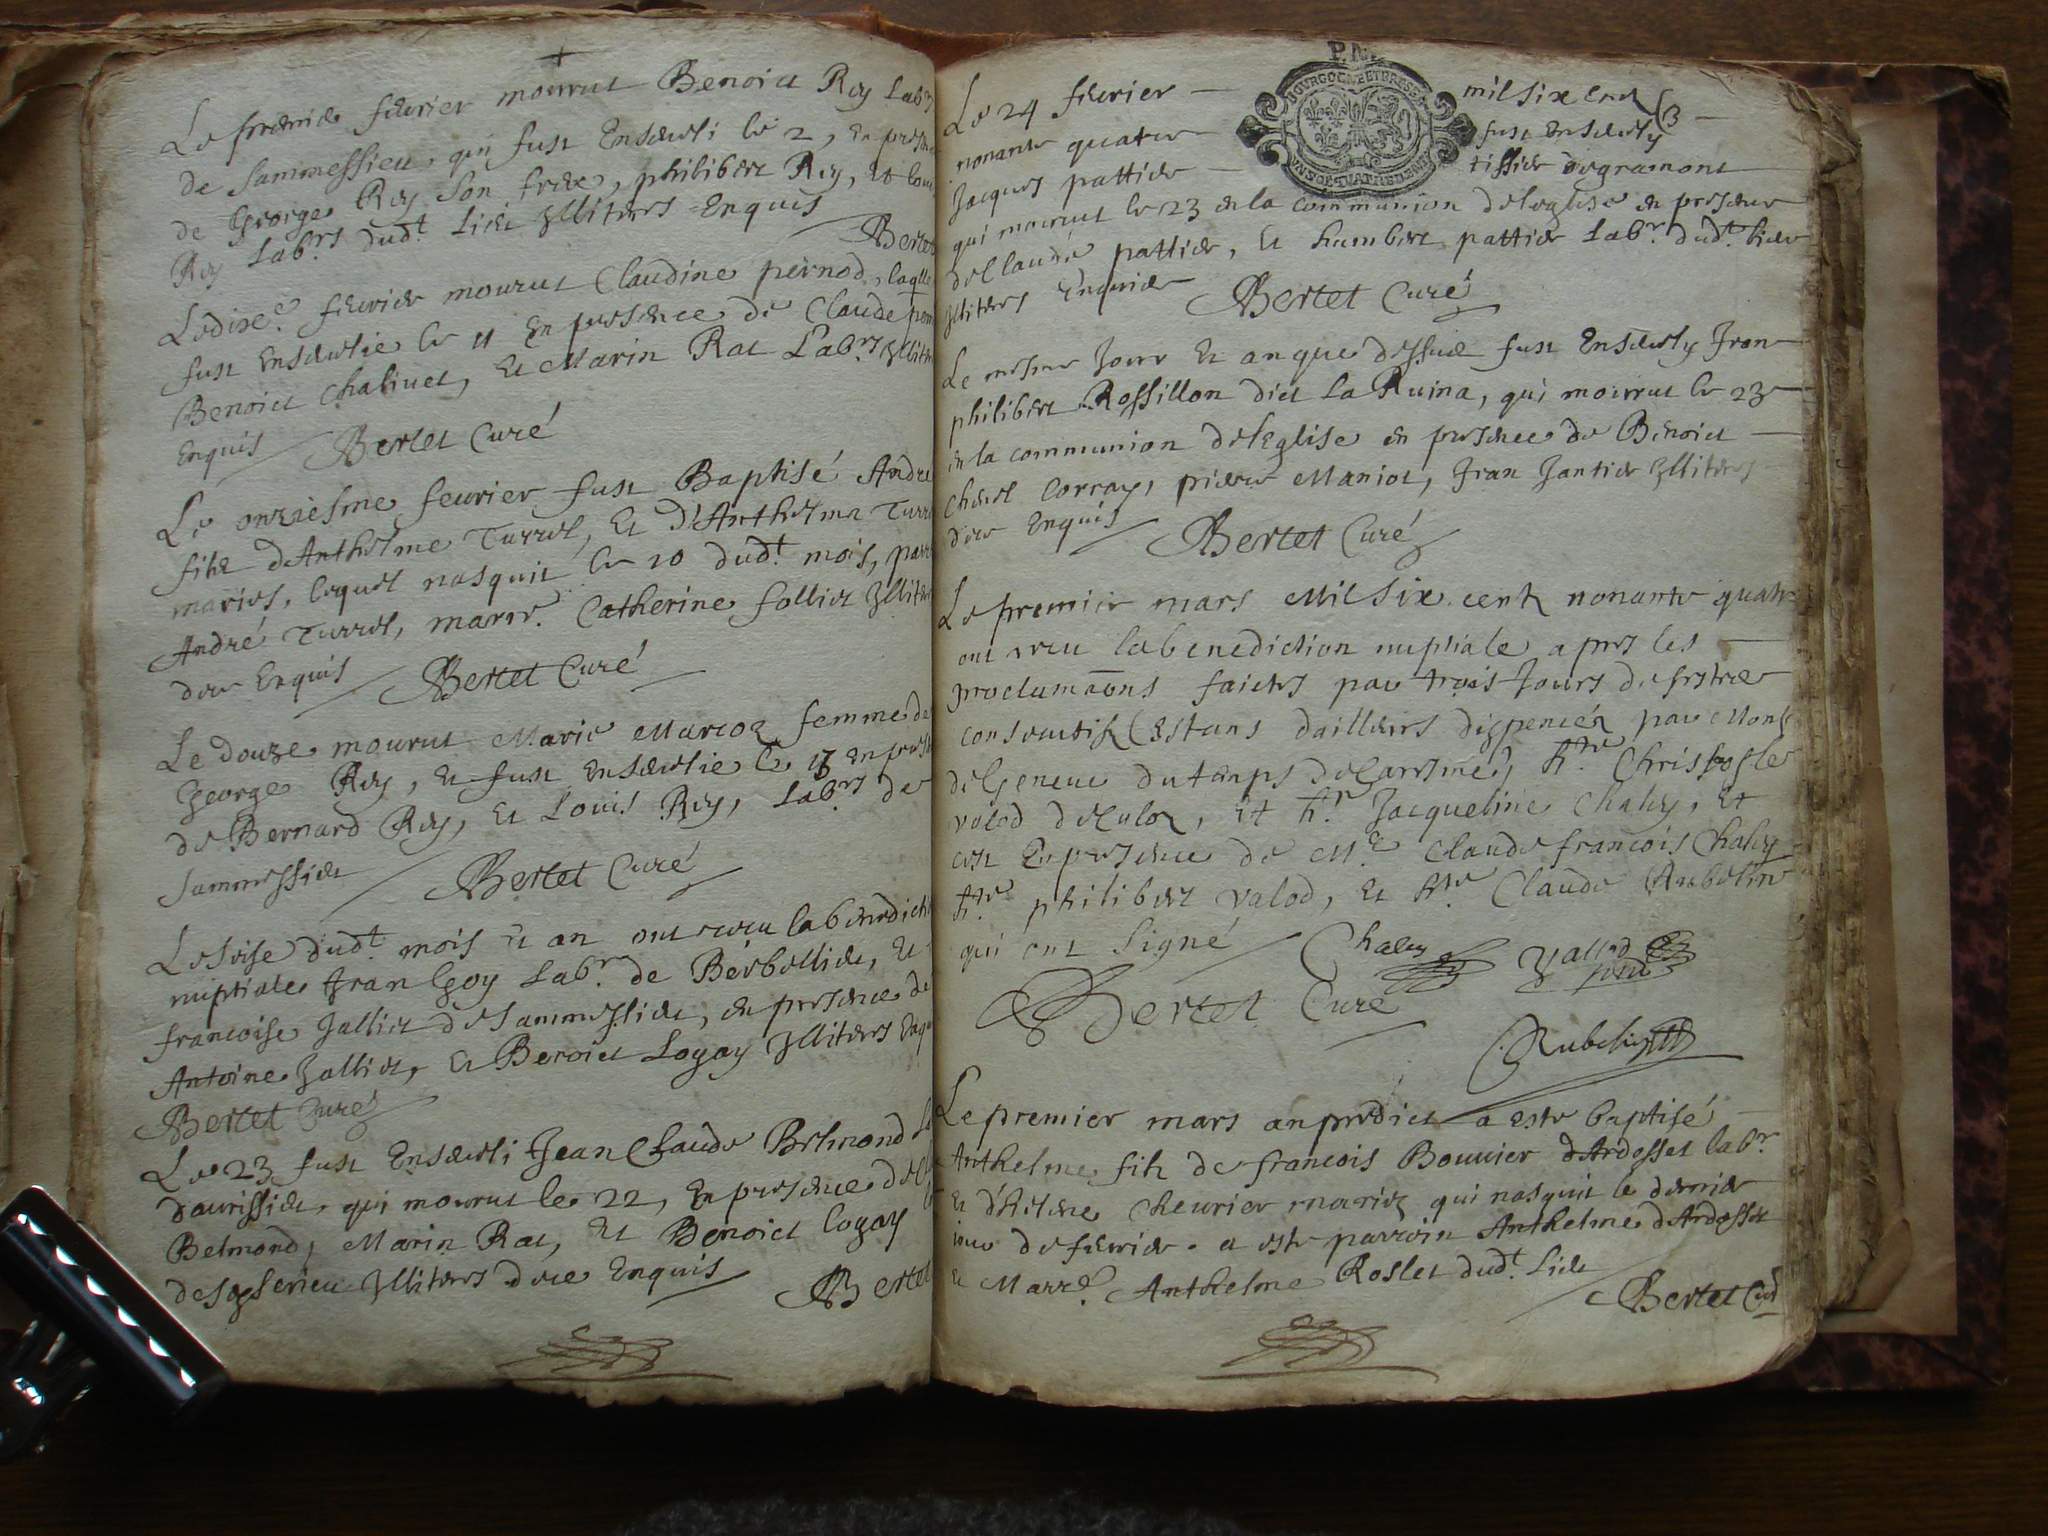 Le premier feurier mourut Benoict Rey Lab
de Sammessieu, qui fust Enseueli le 2, En pres
de George Rey son frere, philibert Rey, Et Loui
Rey Lab.rs dud.t Lieu Illiteres Enquis
Bertet
Le dixe.e feurier mourut Claudine pernod, laqlle
fust Enseuelie le 11 En presence de Claude pern
Benoict Chalinet, Et Marin Rat Lab.rs Illite
Enquis Bertet Curé
Le onziesme feurier fust Baptisé André
filz d'Anthelme Turrel, Et d'Anthelma Turr
mariés, lequel nasquit le 10 dud.t mois, parr
André Turrel, marr.e Catherine folliet Illiter
deue Enquis Bertet Curé
Le douze mourut Marie Marcoz femme de
George Rey, Et fust Enseuelie le 13 En pres
de Bernard Rey, Et Louis Rey, Lab.rs de
Sammessieu Bertet Curé
Le seise dud.t mois Et an ont receu la benedicti
nuptiale Jean Goy Lab.r de Berbellieu, Et
francoise Jalliet de Sammessieu, en presence de
Antoine Jalliet, Et Benoict Logay Illiteres Enqu
Bertet Curé
Le 23 fust Enseueli Jean Claude Belmond
d'aurissieu, qui mourut le 22, En presence de Cl
Belmond, Marin Rat, Et Benoict Logay
Illiteres deue Enquis Bertet
Le 24 feurier mil six cent
nonante quatre fust Enseuely
Jacques pattier tissier de gramont
qui mourut le 23 en la communion de leglise en presence
de Claude pattier, Et humbert pattier Lab.r dud.t lieu
Illiteres Enquis Bertet Curé
Le mesme Jour Et an que dessus fust Enseuely Jean
philibert Rossillon dict La Ruina, qui mourut le 23
en la communion de l'Eglise en presence de Benoict
pierre Maniot, Jean Jantier Illiteres
deue Enquis Bertet Curé
Le premier mars Mil six centz nonante quatre
ont receu la benediction nuptiale apres les
proclamaons faictes par trois Jours de festes
consecutifz (estans dailleurs dispencéz par Mons
de Geneue du temps de Caresme) h.te Christofle
valod de Culoz, Et h.te Jacqueline Chaley, Et
cest En presence de M.e Claude francois Chaley
h.te philibert valod, Et h.te Claude Rubelin
qui ont signé Chaley Vallod
Bertet Curé
C. Rubelin
Le premier mars an predict a este baptisé
Anthelme filz de francois Bouuier d'Ardosset lab.r
Et d'helene Cheurier mariez qui nasquit le dernier
iour de feurier. a este parrein Anthelme d'Ardosset
Et Marr.e Anthelme Roslet dud.t Lieu
Bertet Curé
BOURGOGNE ET BRESSE